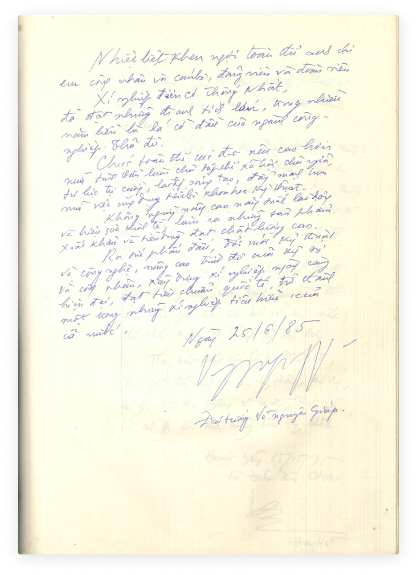 Nhiệt liệt khen ngợi toàn thể anh chị
em công nhân và cán bộ, đảng viên và đoàn viên
Xí nghiệp điện cơ Thống Nhất,
đã đạt những thành tích lớn, trong nhiều
năm liền là lá cờ đầu của ngành công-
nghiệp Thủ đô.
Chúc toàn thể các đ/c nêu cao hơn
nữa tinh thần làm chủ tập thể xã hội chủ nghĩa,
tự lực tự cường, lao động sáng tạo, đẩy mạnh hơn
nữa việc ứng dụng tiến bộ khoa học kỹ thuật.
Không ngừng nâng cao năng suất lao động
và hiệu quả kinh tế, làm ra nhiều sản phẩm
xuất khẩu và tiêu dùng đạt chất lượng cao.
Ra sức phấn đấu, đổi mới kỹ thuật
và công nghệ, nâng cao trình độ của kỹ sư
và công nhân, xây dựng xí nghiệp ngày càng
hiện đại, đạt tiêu chuẩn quốc tế, trở thành
một trong những xí nghiệp tiêu biểu của
cả nước.
Ngày 25/6/85
Đại tướng Võ nguyên Giáp.